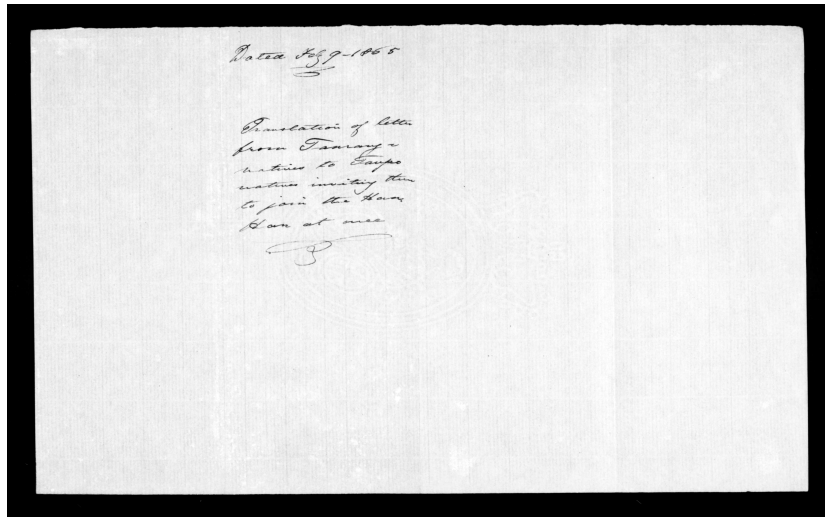 Dated Feb 9 - 1865
Translation of letter
from Tauranga
natives to Taupo
natives inviting them
to join the Hau
Hau at once